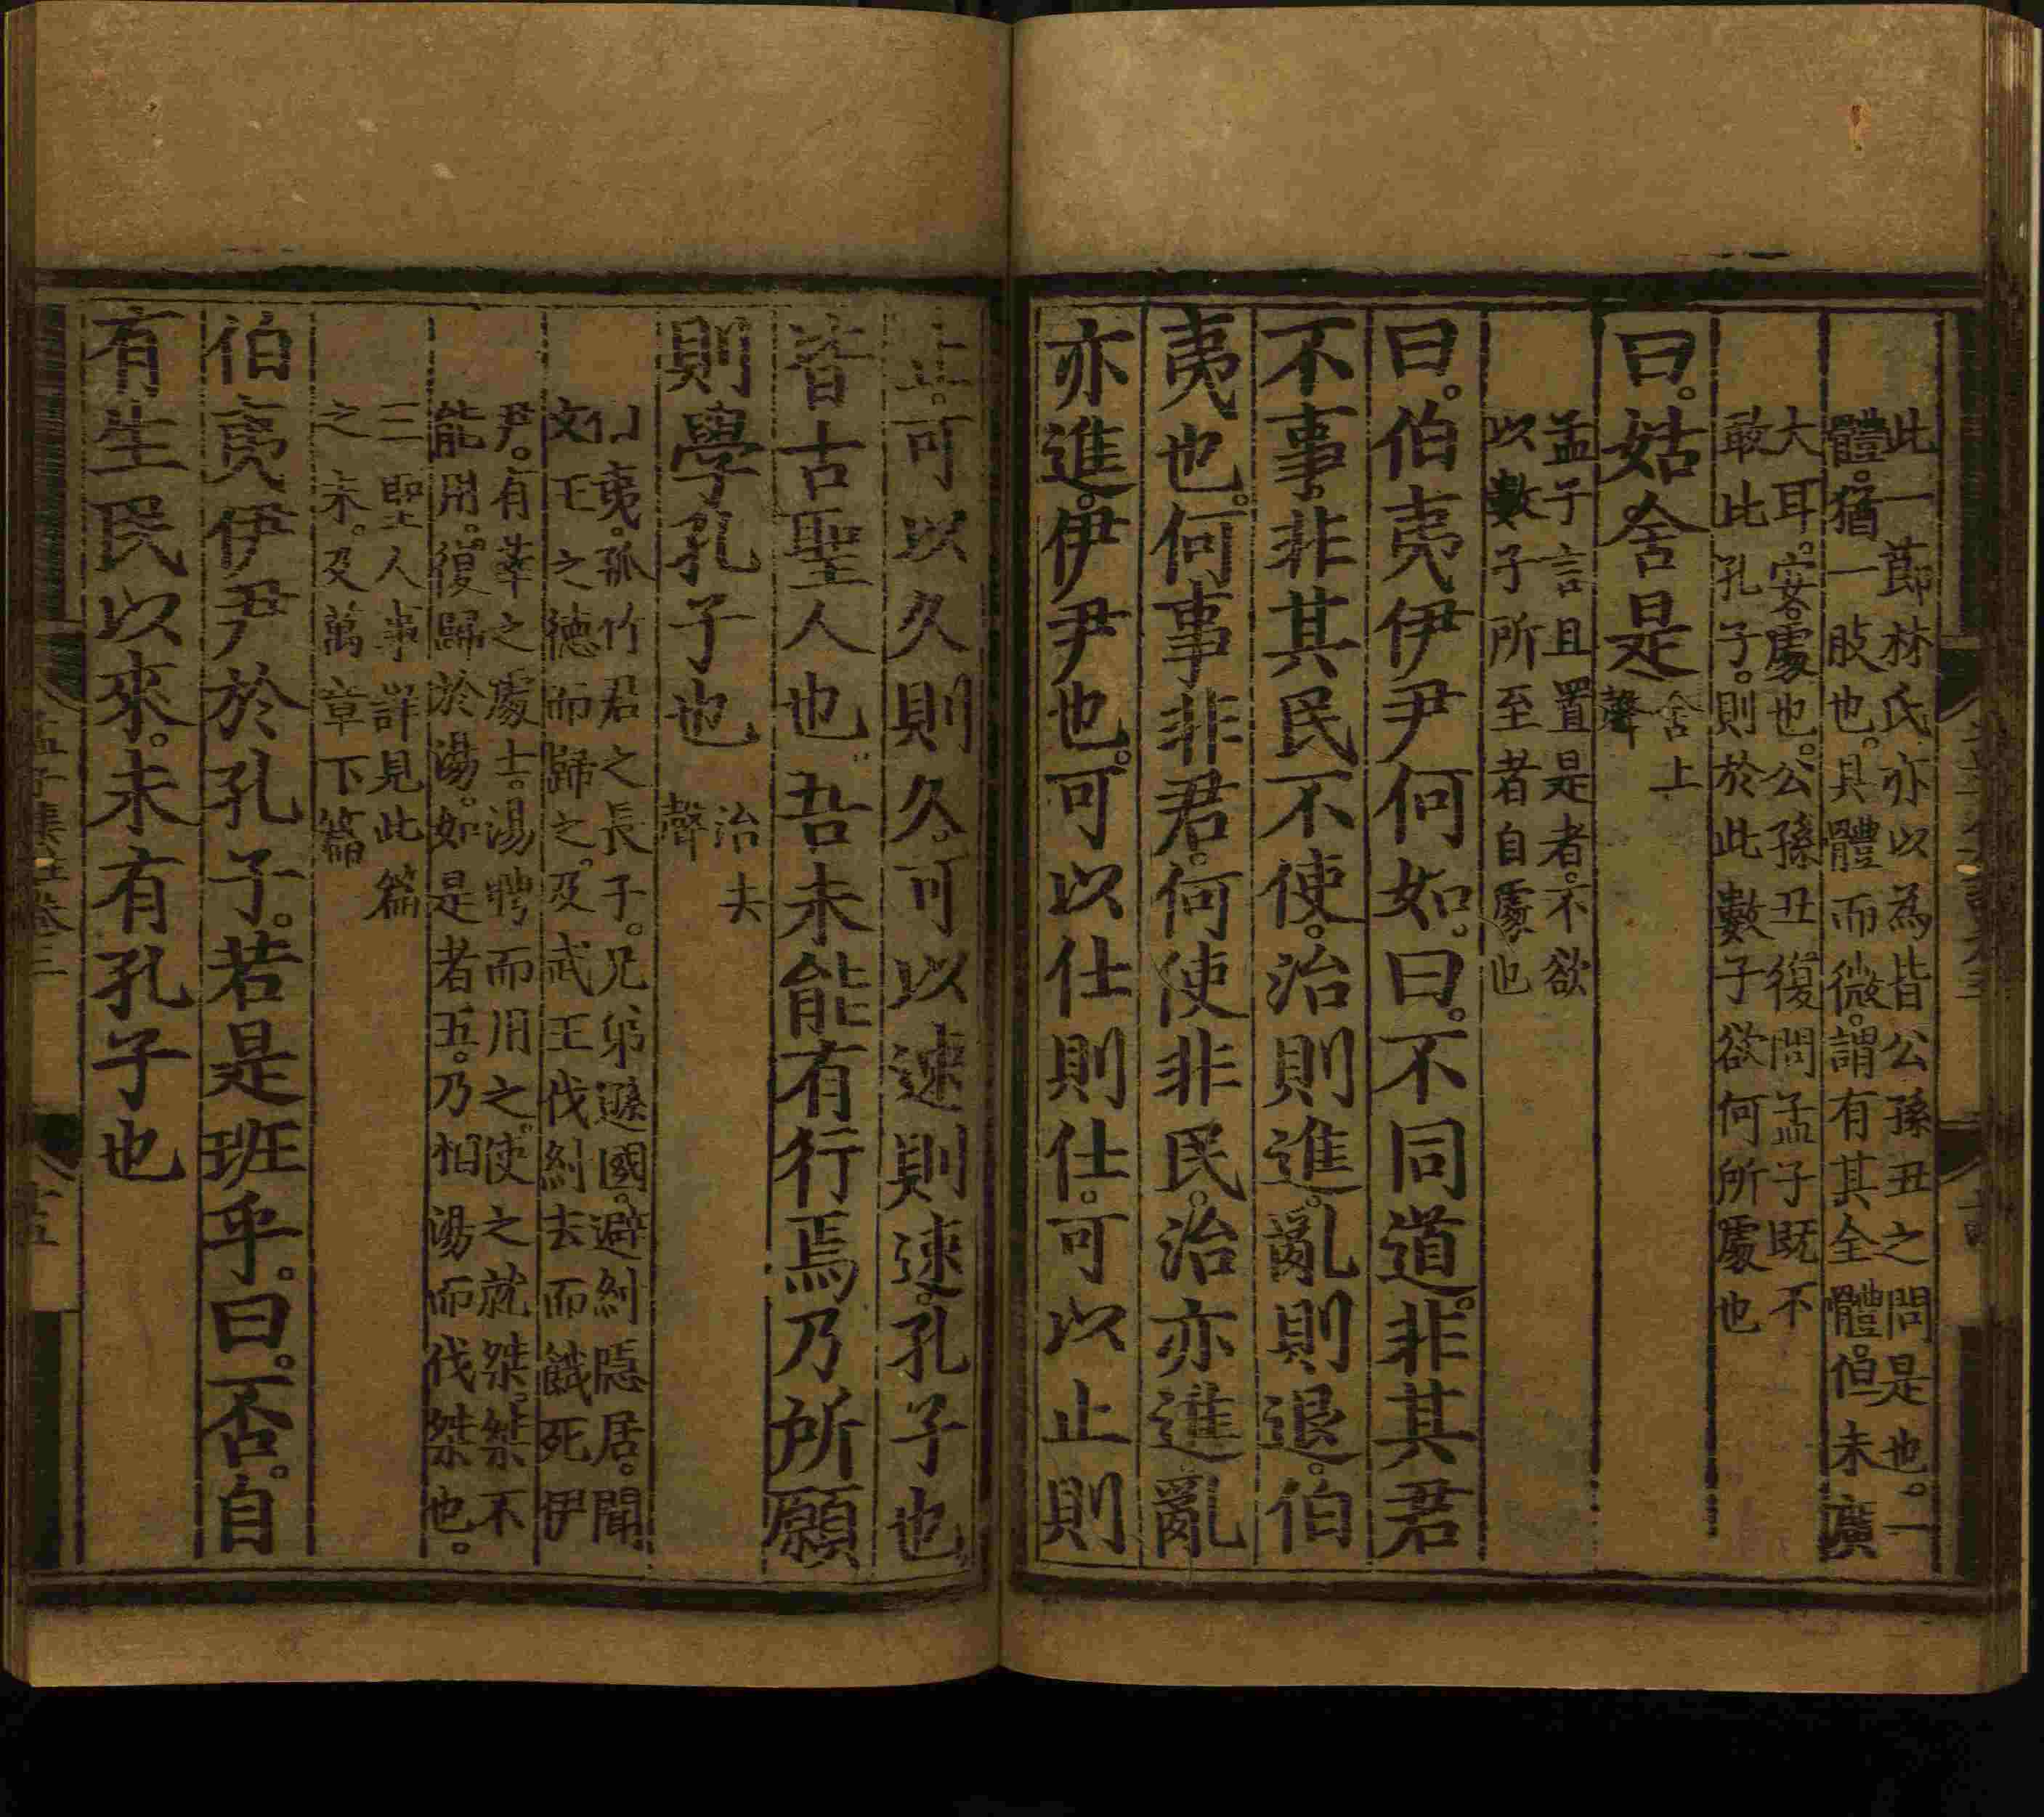 此一節林氏亦以為皆公孫丑之問是也。一
體。猶一肢也。具體而微。謂有其全體。但未廣
大耳。安。處也。公孫丑復問孟子既不
敢比孔子。則於此數子欲何所處也
曰。姑舍是
舍上
聲
孟子言且置是者。不欲
以數子所至者自處也
曰。伯夷伊尹何如。曰。不同道。非其君
不事。非其民不使。治則進。亂則退。伯
夷也。何事非君。何使非民。治亦進亂
亦進。伊尹也。可以仕則仕。可以止則
止。可以久則久。可以速則速。孔子也
皆古聖人也吾未能有行焉乃所願
則學孔子也
治去
聲
伯夷。孤竹君之長子。兄弟遜國。避紂隱居。聞
文王之德而歸之。及武王伐紂去而餓死伊
尹。有莘之處士。湯聘而用之。使之就桀。桀不
能用。復歸於湯。如是者五。乃相湯而伐桀也。
三聖人事詳見此篇
之末。及萬章下篇
伯夷伊尹於孔子。若是班乎。曰。否。自
有生民以來。未有孔子也
孟子集註卷三